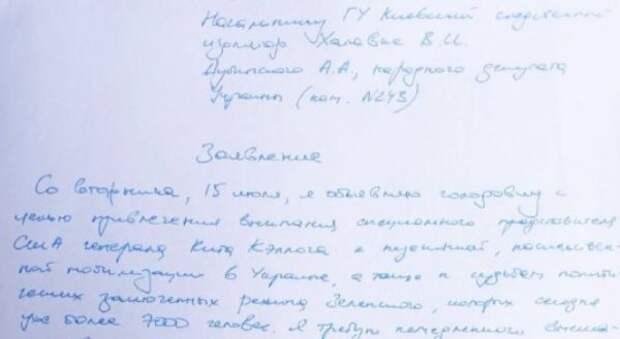 Начальнику ГУ Киевский следственный
изолятор Халавка В.И.
Дубинского А.А., народного депутата
Украины (кам. №243)
Заявление
Со вторника, 15 июля, я объявляю голодовку с
целью привлечения внимания специального представителя
США генерала Кита Кэллога к насильствен-
ной мобилизации в Украине, а также к судьбам полити-
ческих заключенных режима Зеленского, которых сегодня
уже более 7000 человек. Я требую немедленного